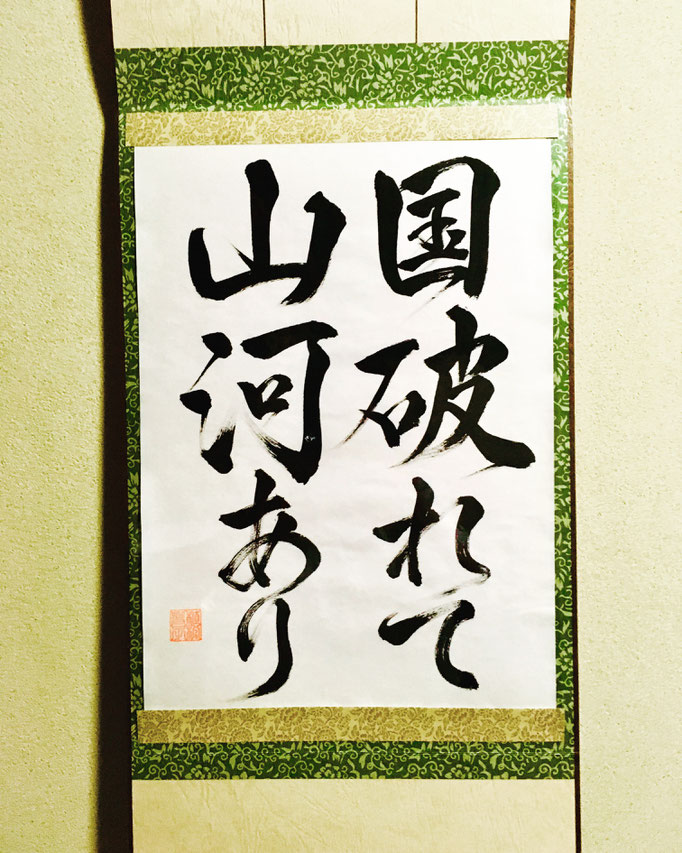 国破れて
山河あり